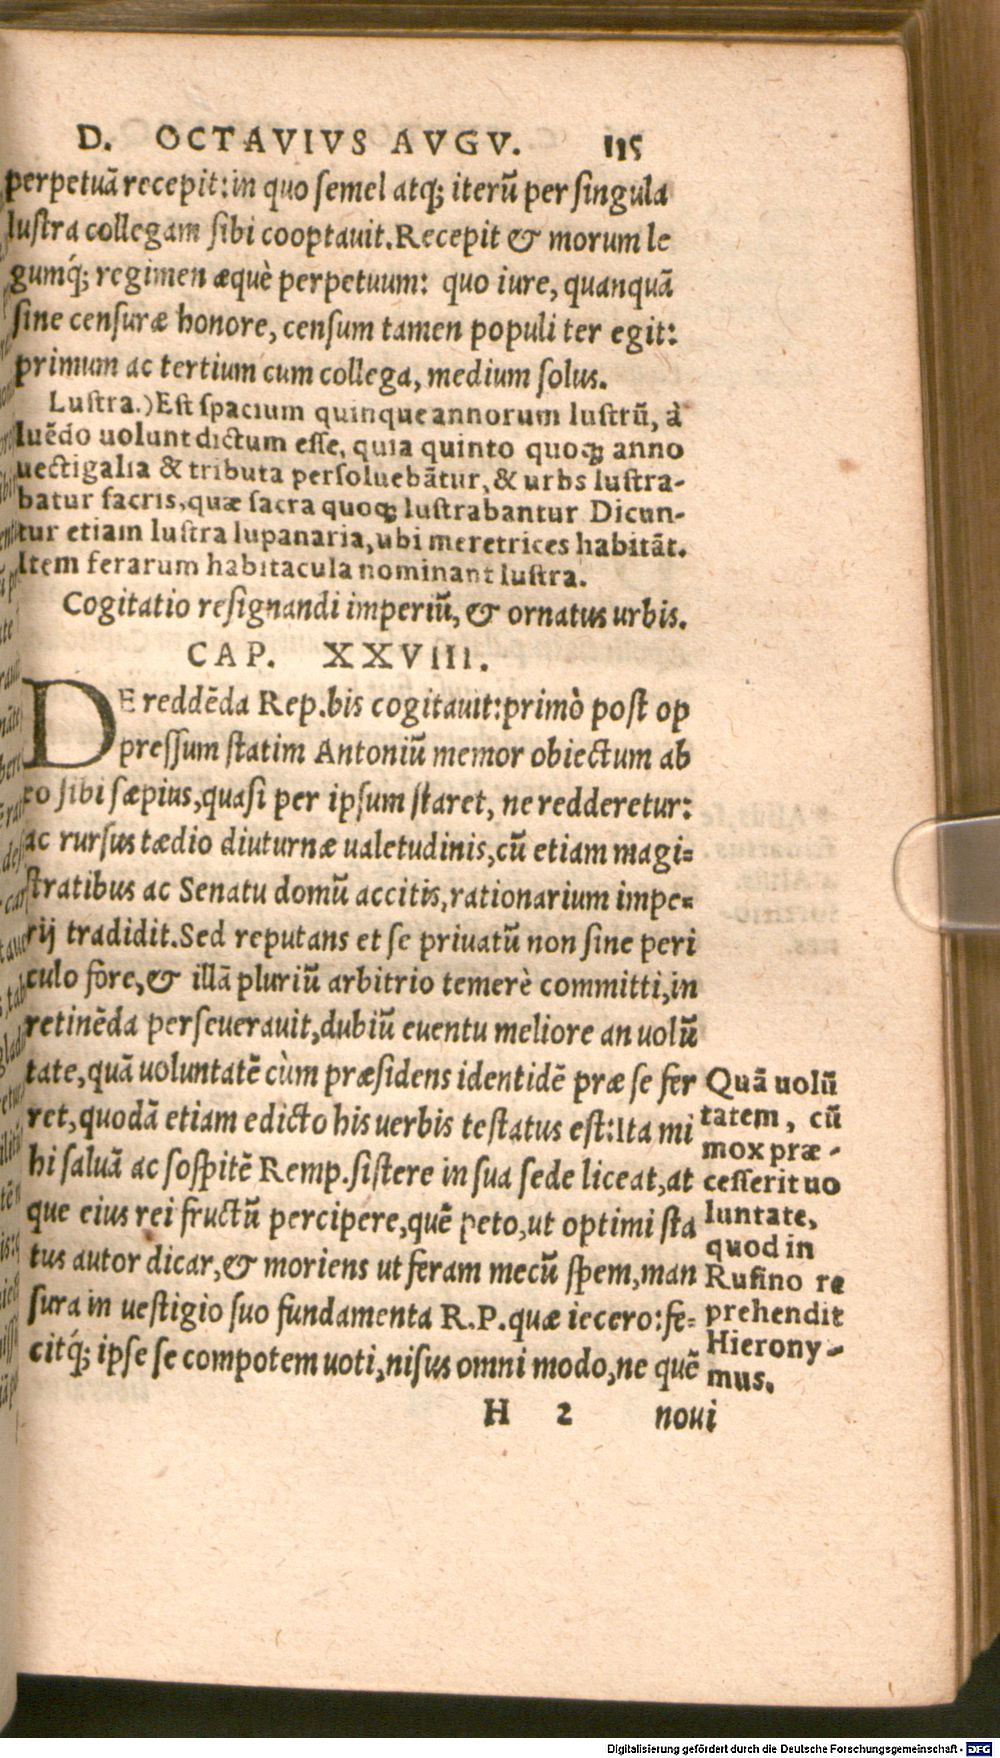 D. OCTAVIVS AVGV. 115
perpetuā recepit: in quo semel atq; iterū per singula
lustra collegam sibi cooptauit. Recepit & morum le
gumq́; regimen æquè perpetuum: quo iure, quanquā
sine censuræ honore, censum tamen populi ter egit:
primum ac tertium cum collega, medium solus.
Lustra.) Est spacium quinque annorum lustrū, à
luēdo uolunt dictum esse, quia quinto quoq; anno
uectigalia & tributa persoluebātur, & urbs lustra-
batur sacris, quæ sacra quoq; lustrabantur Dicun-
tur etiam lustra lupanaria, ubi meretrices habitāt.
Item ferarum habitacula nominant lustra.
Cogitatio resignandi imperiū, & ornatus urbis.
CAP. XXVIII.
DE reddēda Rep. bis cogitauit: primò post op
pressum statim Antoniū memor obiectum ab
eo sibi sæpius, quasi per ipsum staret, ne redderetur:
ac rursus tædio diuturnæ ualetudinis, cū etiam magi-
stratibus ac Senatu domū accitis, rationarium impe-
rij tradidit. Sed reputans et se priuatū non sine peri
culo fore, & illā pluriū arbitrio temerè committi, in
retinēda perseuerauit, dubiū euentu meliore an uolū
tate, quā uoluntatē cùm præsidens identidē præ se fer
ret, quodā etiam edicto his uerbis testatus est: Ita mi
hi saluā ac sospitē Remp. sistere in sua sede liceat, at
que eius rei fructū percipere, quē peto, ut optimi sta
tus autor dicar, & moriens ut feram mecū spem, man
sura in uestigio suo fundamenta R.P. quæ iecero: fe-
citq́; ipse se compotem uoti, nisus omni modo, ne quē
H 2 noui
Quā uolū
tatem, cū
mox præ-
cesserit uo
luntate,
quod in
Rufino re
prehendit
Hierony-
mus.
Digitalisierung gefördert durch die Deutsche Forschungsgemeinschaft - DFG